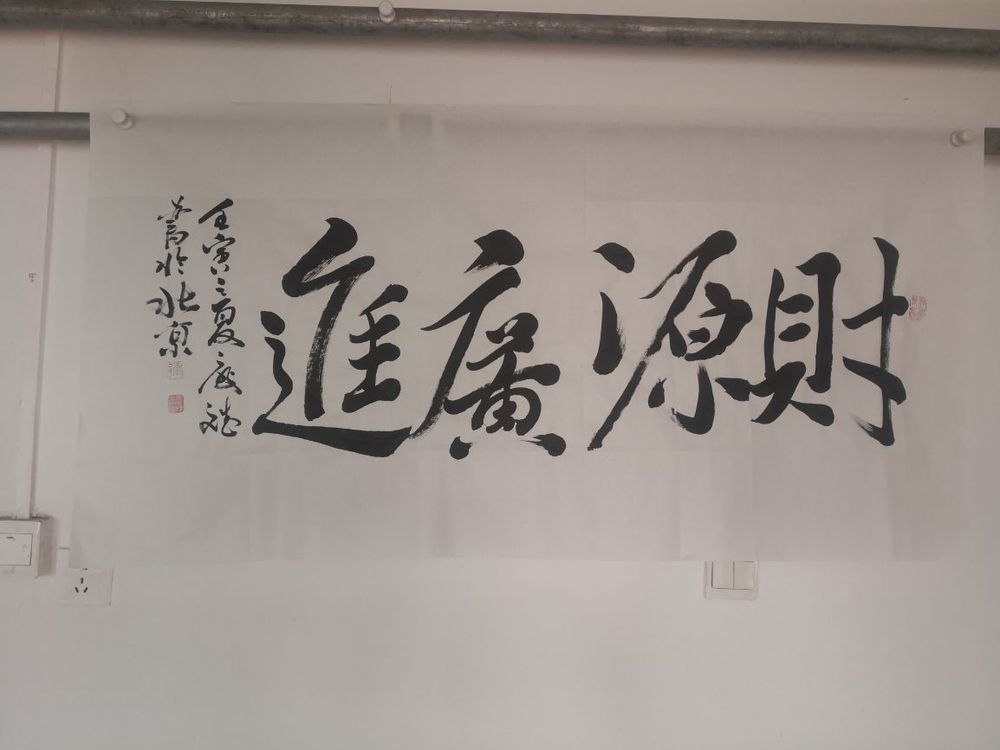 財源廣進
壬寅之夏
書於北京